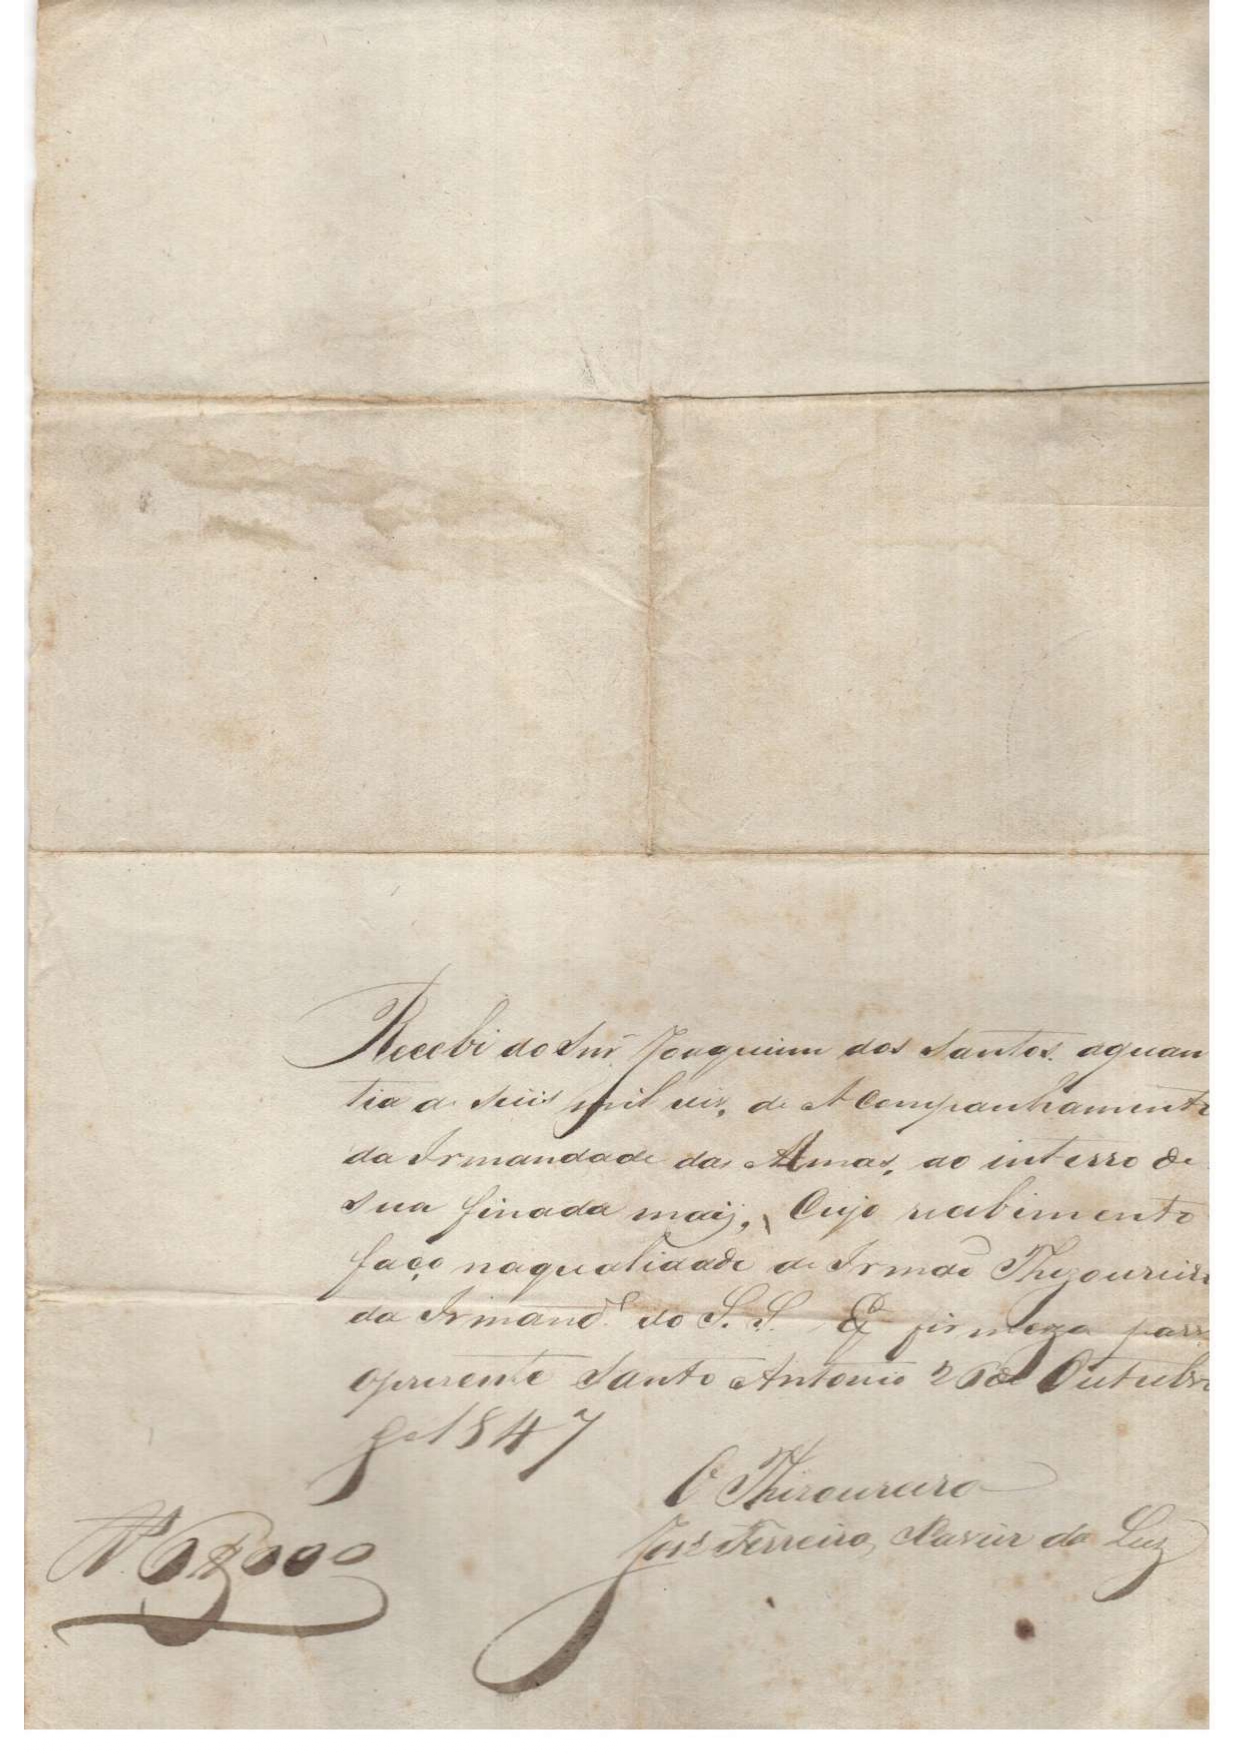 Recebi do Snr. Joaquim dos Santos. aquan
tia de seiis mil reis, de Acompanhamento
da Irmandade das Almas, ao interro de
sua finada maij, Cujo recebimento
faço naqualidade de Irmão Thezoureiro
da Irmand.e do S. S. E firmeza pass
opresente Santo Antonio 26 de Outubro
de 1847
O Thezoureiro
José Ferreira, Xavier da Luz
Rs. 6$000